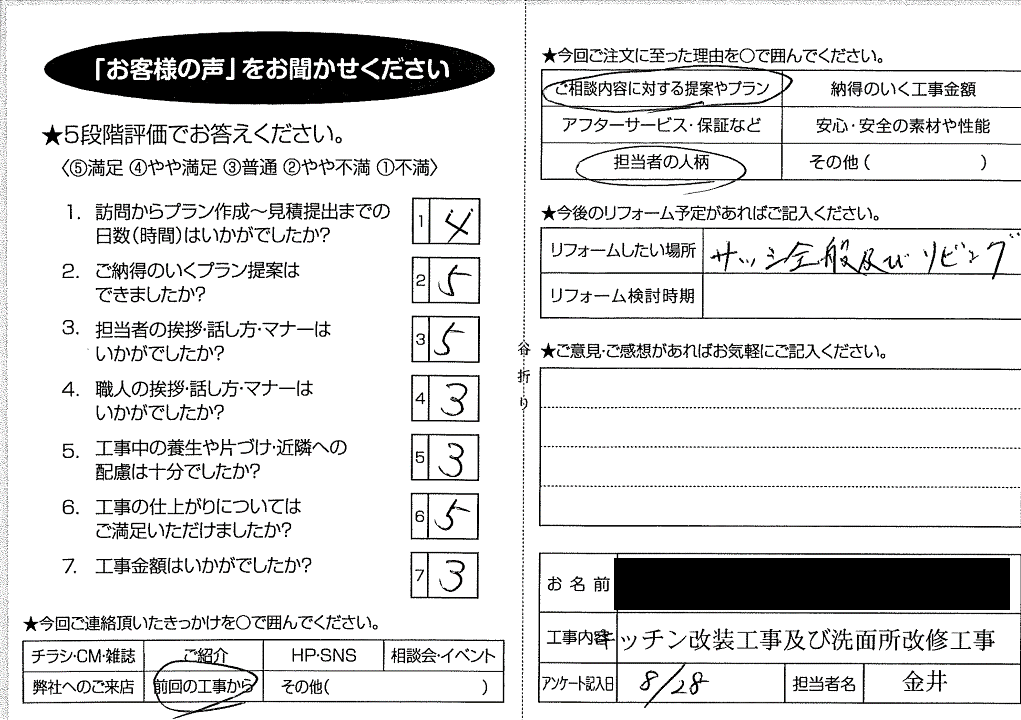 「お客様の声」をお聞かせください
★5段階評価でお答えください。
〈⑤満足 ④やや満足 ③普通 ②やや不満 ①不満〉
1. 訪問からプラン作成～見積提出までの
日数(時間)はいかがでしたか?
1 4
2. ご納得のいくプラン提案は
できましたか?
2 5
3. 担当者の挨拶・話し方・マナーは
いかがでしたか?
3 5
4. 職人の挨拶・話し方・マナーは
いかがでしたか?
4 3
5. 工事中の養生や片づけ・近隣への
配慮は十分でしたか?
5 3
6. 工事の仕上がりについては
ご満足いただけましたか?
6 5
7. 工事金額はいかがでしたか?
7 3
★今回ご連絡頂いたきっかけを○で囲んでください。
チラシ・CM・雑誌 ご紹介 HP・SNS 相談会・イベント
弊社へのご来店 前回の工事から その他( )
谷折り
★今回ご注文に至った理由を○で囲んでください。
ご相談内容に対する提案やプラン 納得のいく工事金額
アフターサービス・保証など 安心・安全の素材や性能
担当者の人柄 その他( )
★今後のリフォーム予定があればご記入ください。
リフォームしたい場所 サッシ全般及びリビング
リフォーム検討時期
★ご意見・ご感想があればお気軽にご記入ください。
お名前
工事内容 キッチン改装工事及び洗面所改修工事
アンケート記入日 8/28 担当者名 金井